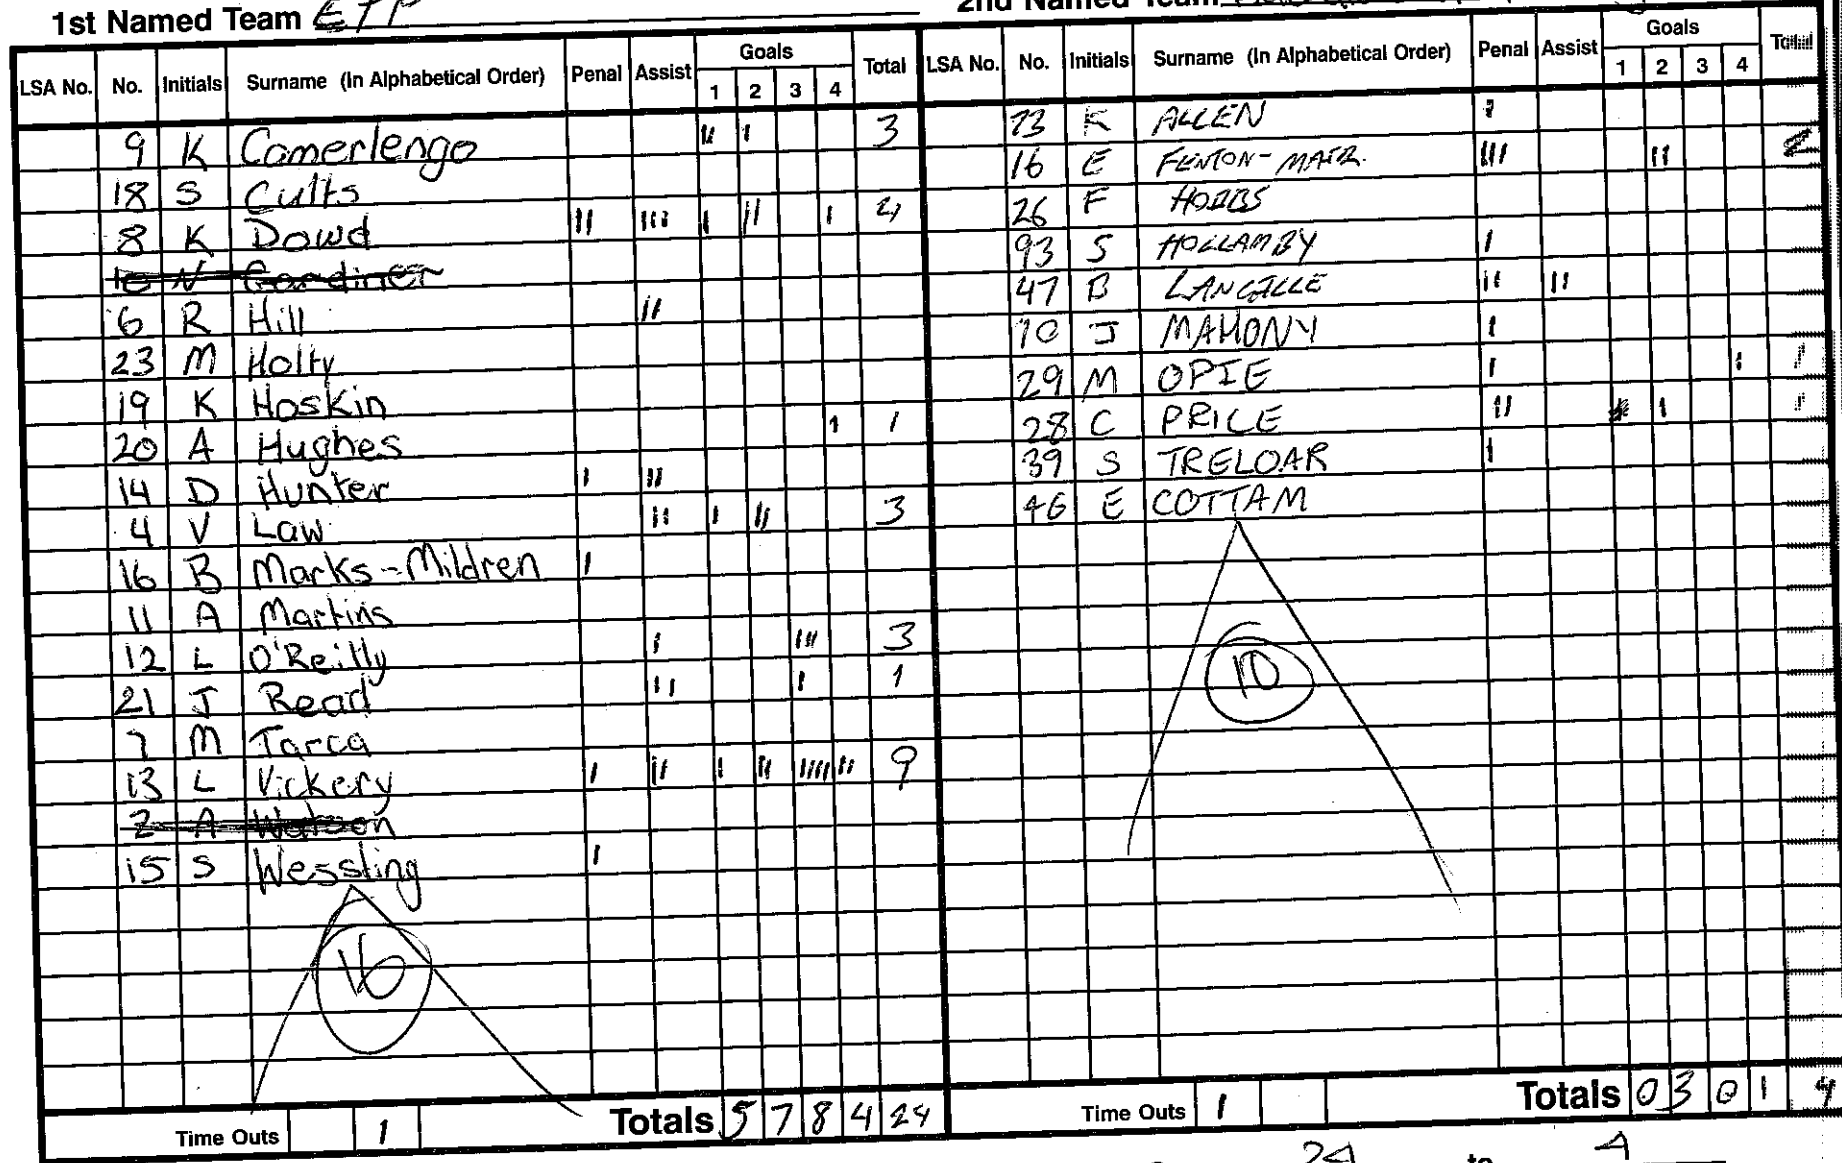 1st Named Team ETP
2nd Named Team
LSA No. No. Initials Surname (In Alphabetical Order) Penal Assist Goals 1 2 3 4 Total
9 K Camerlengo II I 3
18 S Cults
8 K Dowd II III I II I 4
10 N Gardiner
6 R Hill II
23 M Holty
19 K Hoskin
20 A Hughes 1 1
14 D Hunter I II
4 V Law II I II 3
16 B Marks-Mildren I
11 A Martins
12 L O'Reilly I III 3
21 J Read II I 1
7 M Tarca
13 L Vickery I II I II IIII II 9
2 A Watson
15 S Wessling I
16
Time Outs 1 Totals 5 7 8 4 24
LSA No. No. Initials Surname (In Alphabetical Order) Penal Assist Goals 1 2 3 4 Total
73 K ALLEN I
16 E FENTON-MAIR. III II 2
26 F HOBBS
93 S HOLLAMBY I
47 B LANGILLE II II
10 J MAHONY I
29 M OPIE I I 1
28 C PRICE II I 1
39 S TRELOAR I
46 E COTTAM
10
Time Outs 1 Totals 0 3 0 1 4
24 to 4